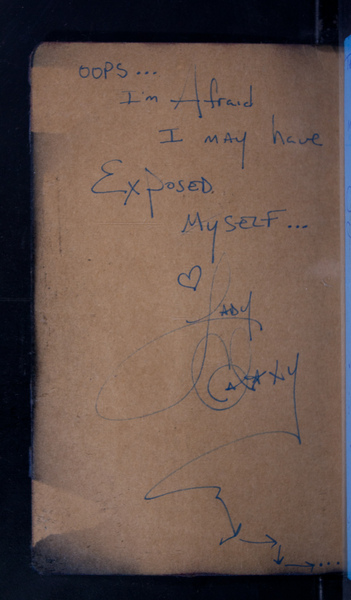 OOPS...
I'm Afraid
I MAY have
EXPOSED.
MYSELF...
LADY